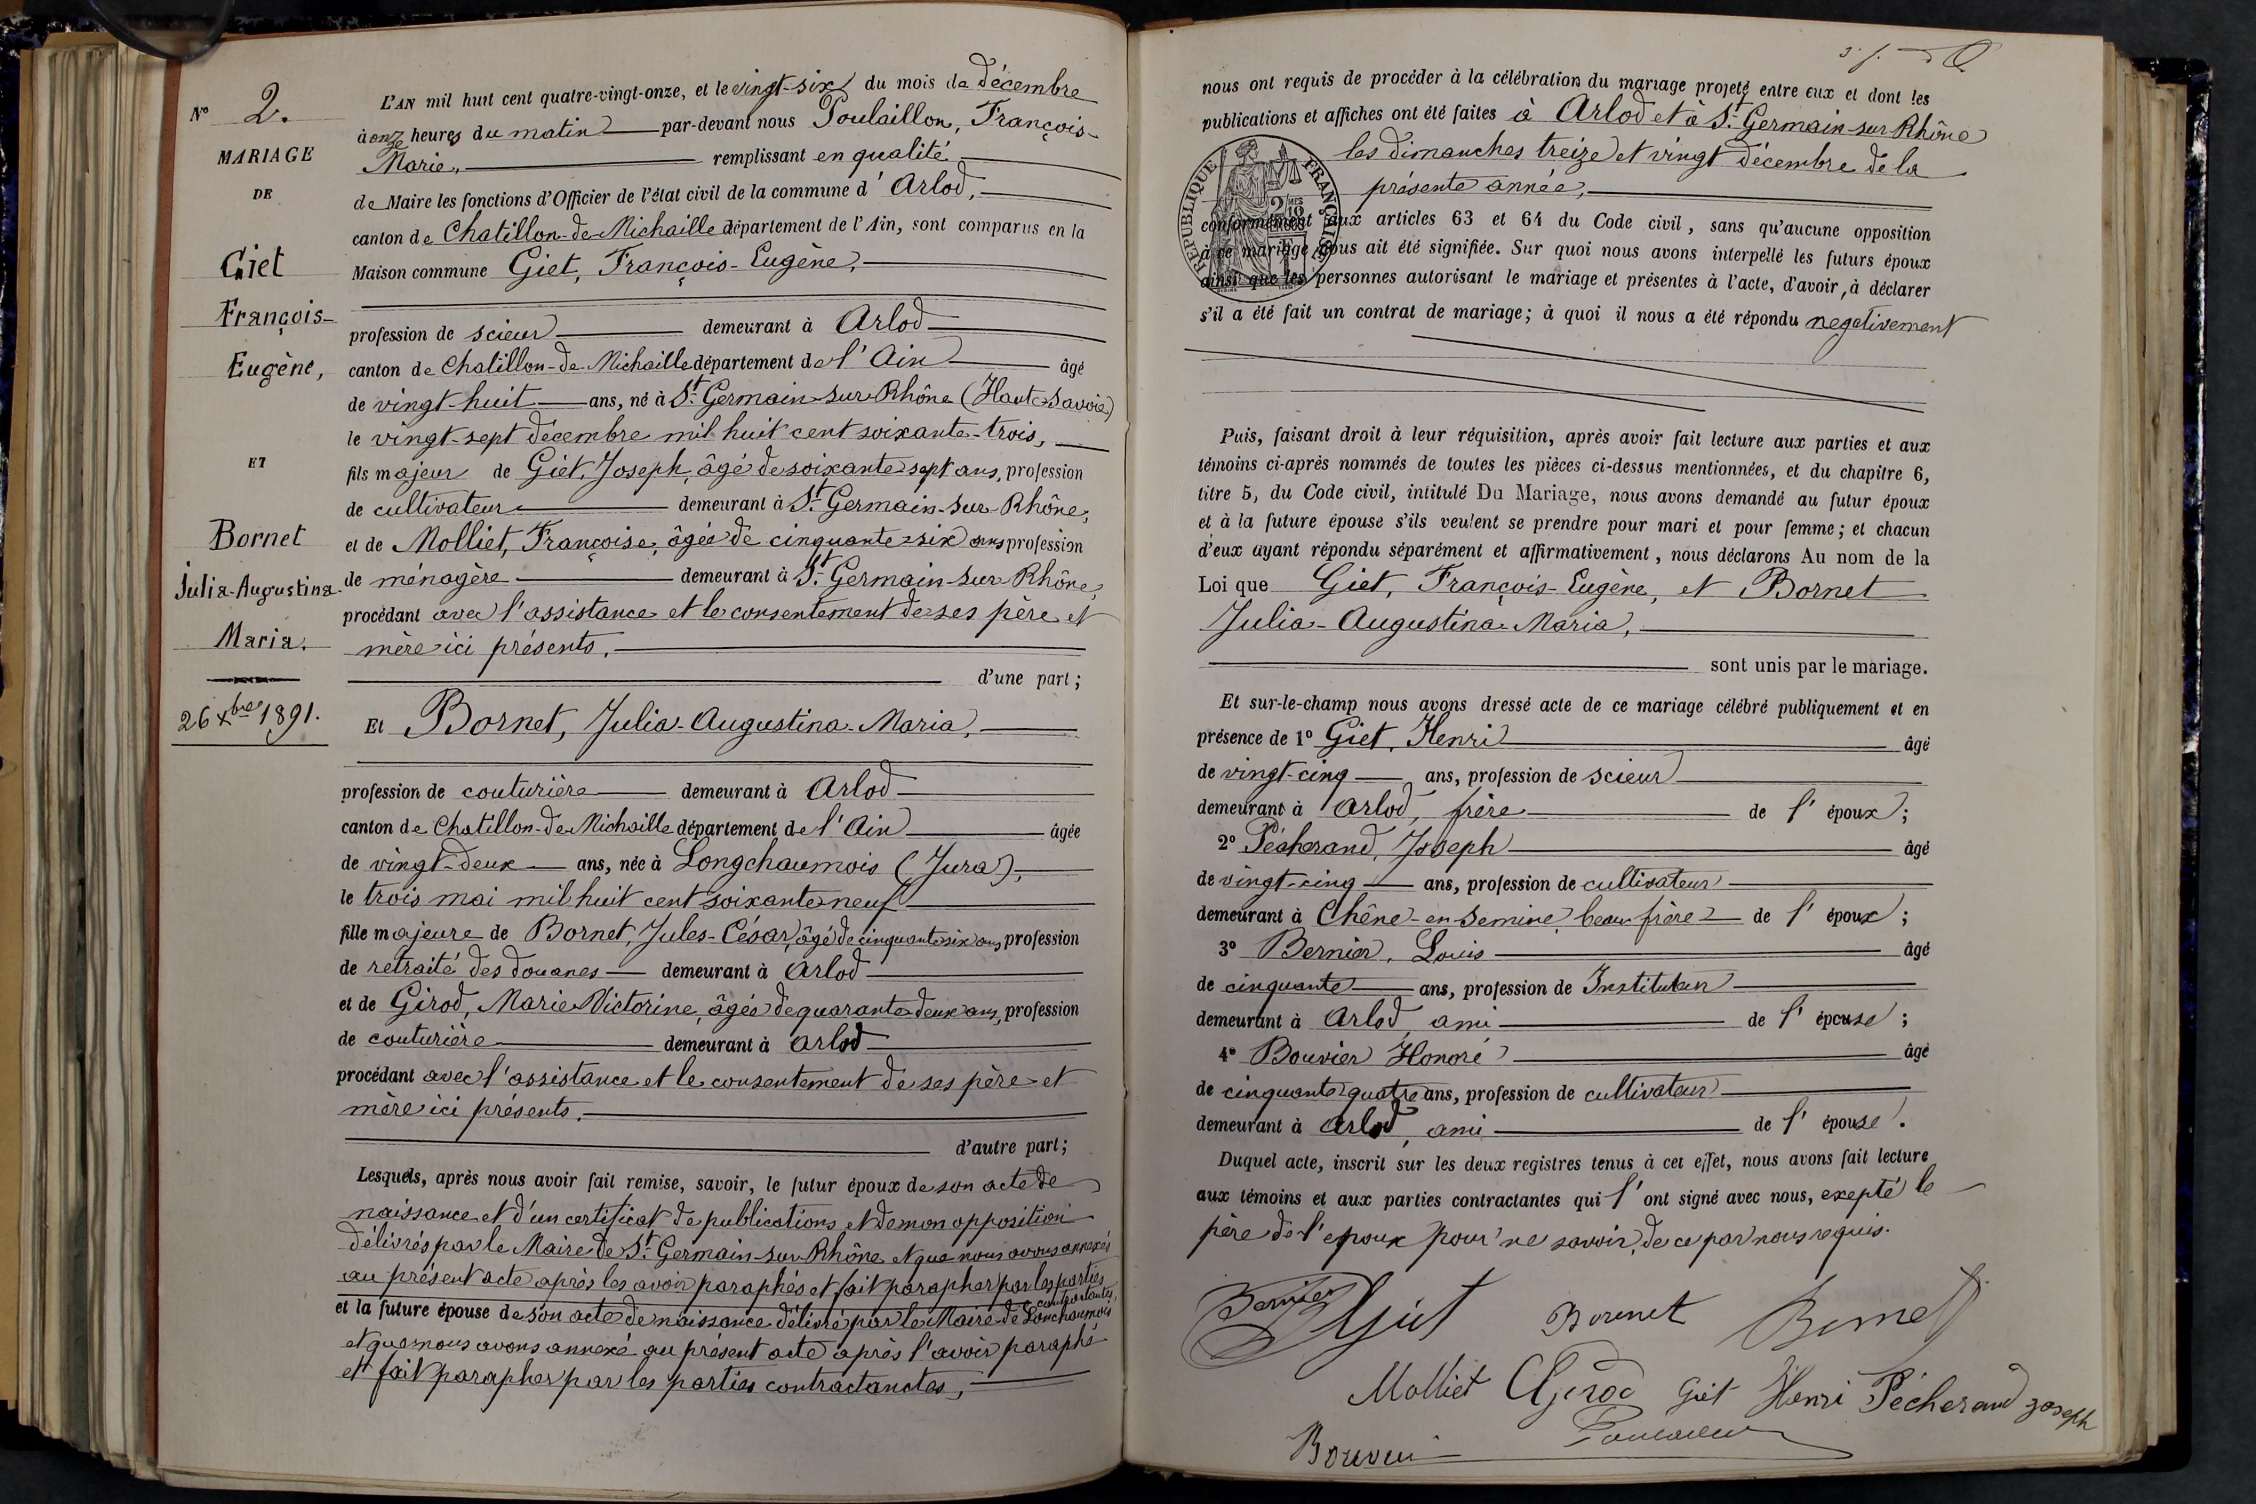 N° 2.
MARIAGE
DE
Giet
François-
Eugène,
ET
Bornet
Julia-Augustina-
Maria.
26 Xbre 1891.
L'AN mil huit cent quatre-vingt-onze, et le vingt-six du mois de décembre
à onze heures du matin par-devant nous Poulaillon, François-
Marie, remplissant en qualité
de Maire les fonctions d'Officier de l'état civil de la commune d'Arlod,
canton de Chatillon-de-Michaille département de l'Ain, sont comparus en la
Maison commune Giet, François-Eugène,
profession de scieur demeurant à Arlod
canton de Chatillon-de-Michaille département de l'Ain âgé
de vingt-huit ans, né à St Germain-sur-Rhône (Haute-Savoie)
le vingt-sept décembre mil huit cent soixante-trois,
fils majeur de Giet, Joseph, âgé de soixante sept ans, profession
de cultivateur demeurant à St Germain-sur-Rhône,
et de Molliet, Françoise, âgée de cinquante-six ans profession
de ménagère demeurant à St Germain-sur-Rhône,
procédant avec l'assistance et le consentement de ses père et
mère ici présents,
d'une part;
Et Bornet, Julia-Augustina-Maria,
profession de couturière demeurant à Arlod
canton de Chatillon-de-Michaille département de l'Ain âgée
de vingt-deux ans, née à Longchaumois (Jura),
le trois mai mil huit cent soixante neuf
fille majeure de Bornet, Jules-César, âgé de cinquante six ans, profession
de retraité des douanes demeurant à Arlod
et de Girod, Marie Victorine, âgée de quarante deux ans, profession
de couturière demeurant à Arlod
procédant avec l'assistance et le consentement de ses père et
mère ici présents,
d'autre part;
Lesquels, après nous avoir fait remise, savoir, le futur époux de son acte de
naissance et d'un certificat de publications et de non opposition
délivrés par le Maire de St Germain-sur-Rhône et que nous avons annexés
au présent acte après les avoir paraphés et fait parapher par les parties
contractantes,
et la future épouse de son acte de naissance délivré par le Maire de Lonchaumois
et que nous avons annexé au présent acte après l'avoir paraphé
et fait parapher par les parties contractanctes,
nous ont requis de procéder à la célébration du mariage projeté entre eux et dont les
publications et affiches ont été faites à Arlod et à St Germain-sur-Rhône
les dimanches treize et vingt décembre de la
présente année,
RÉPUBLIQUE FRANÇAISE
conformément aux articles 63 et 64 du Code civil, sans qu'aucune opposition
à ce mariage nous ait été signifiée. Sur quoi nous avons interpellé les futurs époux
ainsi que les personnes autorisant le mariage et présentes à l'acte, d'avoir, à déclarer
s'il a été fait un contrat de mariage; à quoi il nous a été répondu negativement
Puis, faisant droit à leur réquisition, après avoir fait lecture aux parties et aux
témoins ci-après nommés de toutes les pièces ci-dessus mentionnées, et du chapitre 6,
titre 5, du Code civil, intitulé Du Mariage, nous avons demandé au futur époux
et à la future épouse s'ils veulent se prendre pour mari et pour femme; et chacun
d'eux ayant répondu séparément et affirmativement, nous déclarons Au nom de la
Loi que Giet, François-Eugène, et Bornet
Julia-Augustina-Maria,
sont unis par le mariage.
Et sur-le-champ nous avons dressé acte de ce mariage célébré publiquement et en
présence de 1° Giet, Henri âgé
de vingt-cinq ans, profession de scieur
demeurant à Arlod, frère de l'époux;
2° Pécherand, Joseph âgé
de vingt-cinq ans, profession de cultivateur
demeurant à Chêne-en-Semine, beau frère de l'époux;
3° Bernier, Louis âgé
de cinquante ans, profession de Instituteur
demeurant à Arlod, ami de l'épouse;
4° Bouvier Honoré âgé
de cinquante quatre ans, profession de cultivateur
demeurant à Arlod, ami de l'épouse.
Duquel acte, inscrit sur les deux registres tenus à cet effet, nous avons fait lecture
aux témoins et aux parties contractantes qui l'ont signé avec nous, exepté le
père de l'époux pour ne savoir, de ce par nous requis.
Bernier Giet Bornet Bornet
Molliet Girod Giet Henri Pécherand Joseph
Bouvier Poulaillon